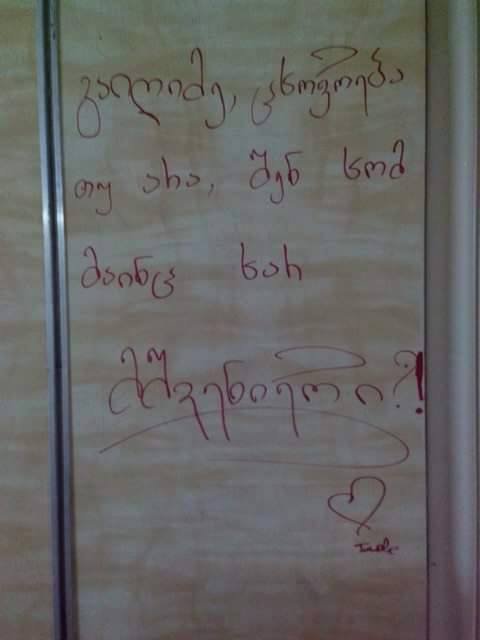 გაიღიმე, ცხოვრება
თუ არა, შენ ხომ
მაინც ხარ
მშვენიერი?!